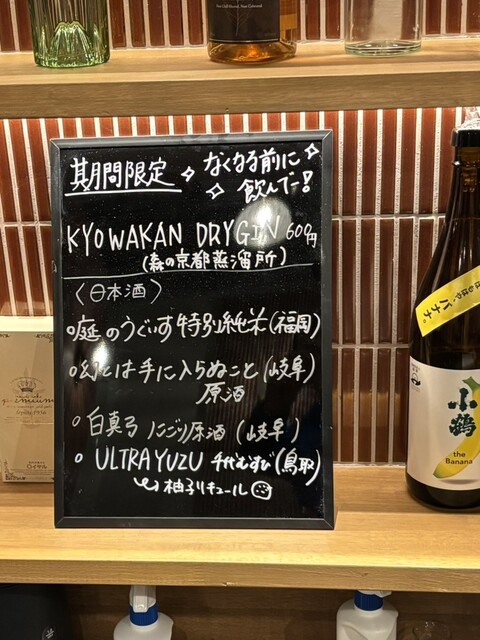 期間限定
なくなる前に
飲んでー!
KYOWAKAN DRY GIN 600円
(森の京都蒸溜所)
〈日本酒〉
庭のうぐいす特別純米(福岡)
幻とは手に入らぬこと(岐阜)
原酒
白真弓 にごり原酒 (岐阜)
ULTRA YUZU 千代むすび(鳥取)
柚子リキュール
バナナ。
小鶴
the
Banana
ロイヤル